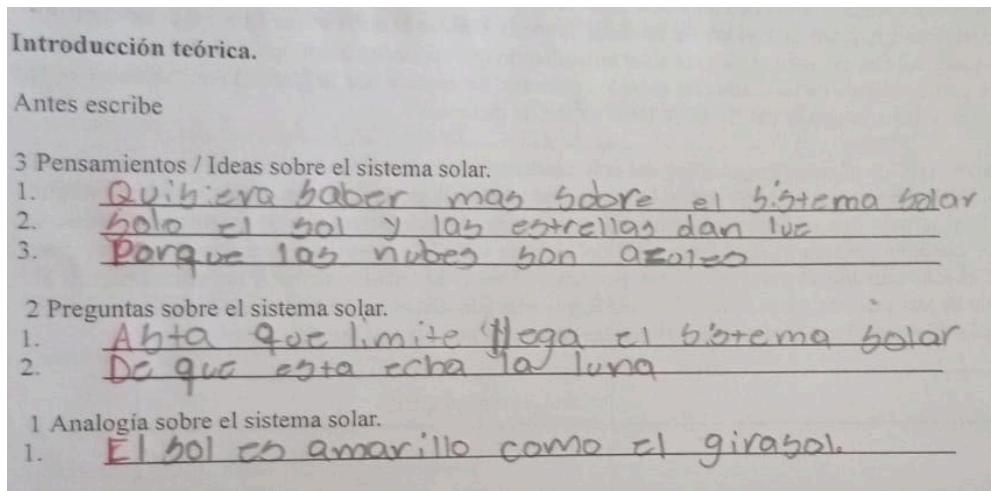 Introducción teórica.
Antes escribe
3 Pensamientos / Ideas sobre el sistema solar.
1. Quisiera saber mas sobre el sistema solar
2. Solo el sol y las estrellas dan luc
3. Porque las nubes son azoles
2 Preguntas sobre el sistema solar.
1. Asta que limite llega el sistema solar
2. De que esta echa la luna
1 Analogía sobre el sistema solar.
1. El sol es amarillo como el girasol.